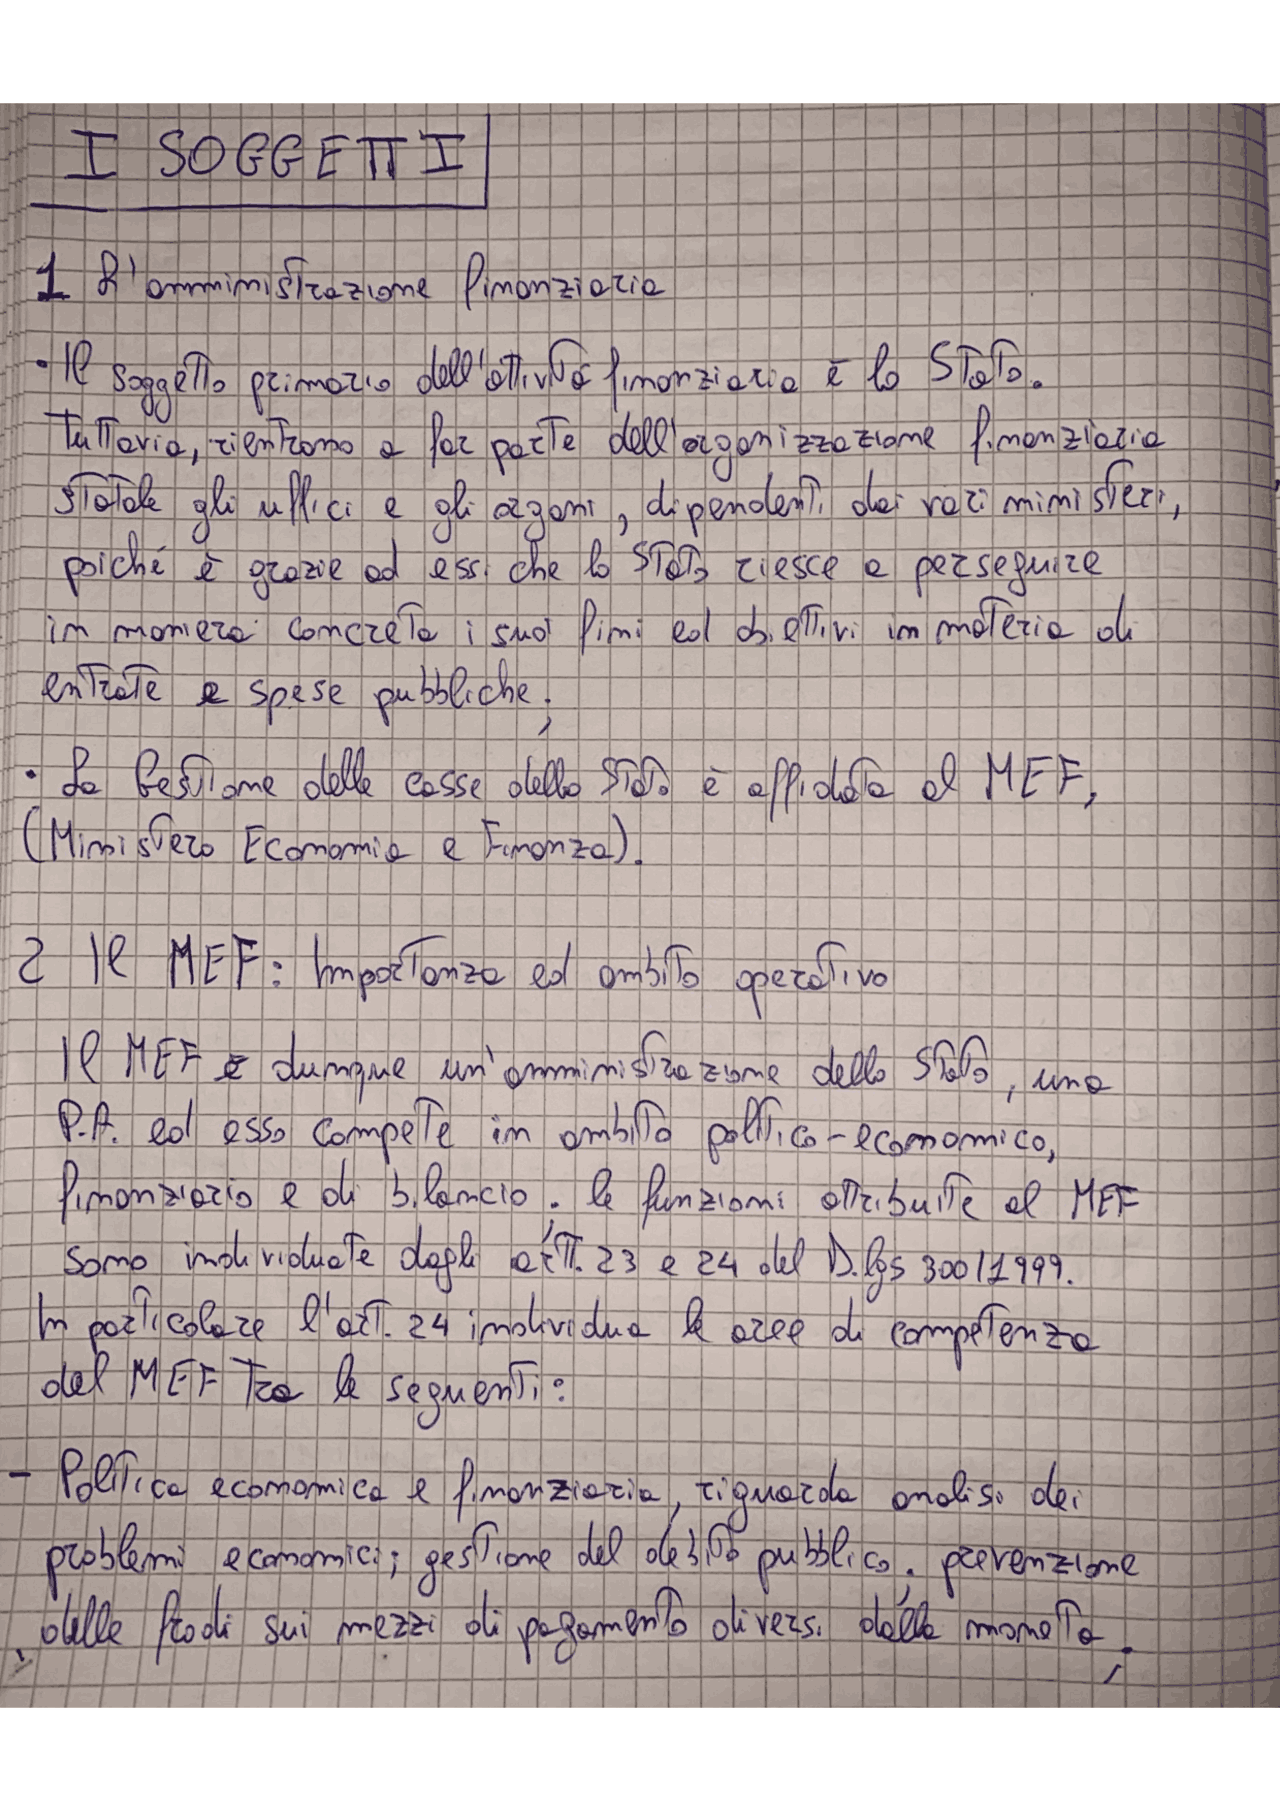 I SOGGETTI
1 L'amministrazione finanziaria
• Il soggetto primario dell'attività finanziaria è lo Stato.
Tuttavia, rientrano a far parte dell'organizzazione finanziaria
statale gli uffici e gli organi, dipendenti dai vari ministeri,
poiché è grazie ad essi che lo Stato riesce a perseguire
in maniera concreta i suoi fini ed obiettivi in materia di
entrate e spese pubbliche;
• La Gestione delle casse dello Stato è affidata al MEF,
(Ministero Economia e Finanza).
2 Il MEF: Importanza ed ambito operativo
Il MEF è dunque un'amministrazione dello Stato, una
P.A. ed esso compete in ambito politico-economico,
finanziario e di bilancio; le funzioni attribuite al MEF
sono individuate dagli artt. 23 e 24 del D.lgs 300/1999.
In particolare l'art. 24 individua le aree di competenza
del MEF tra le seguenti:
- Politica economica e finanziaria, riguarda analisi dei
problemi economici; gestione del debito pubblico; prevenzione
delle frodi sui mezzi di pagamento diversi dalla moneta;